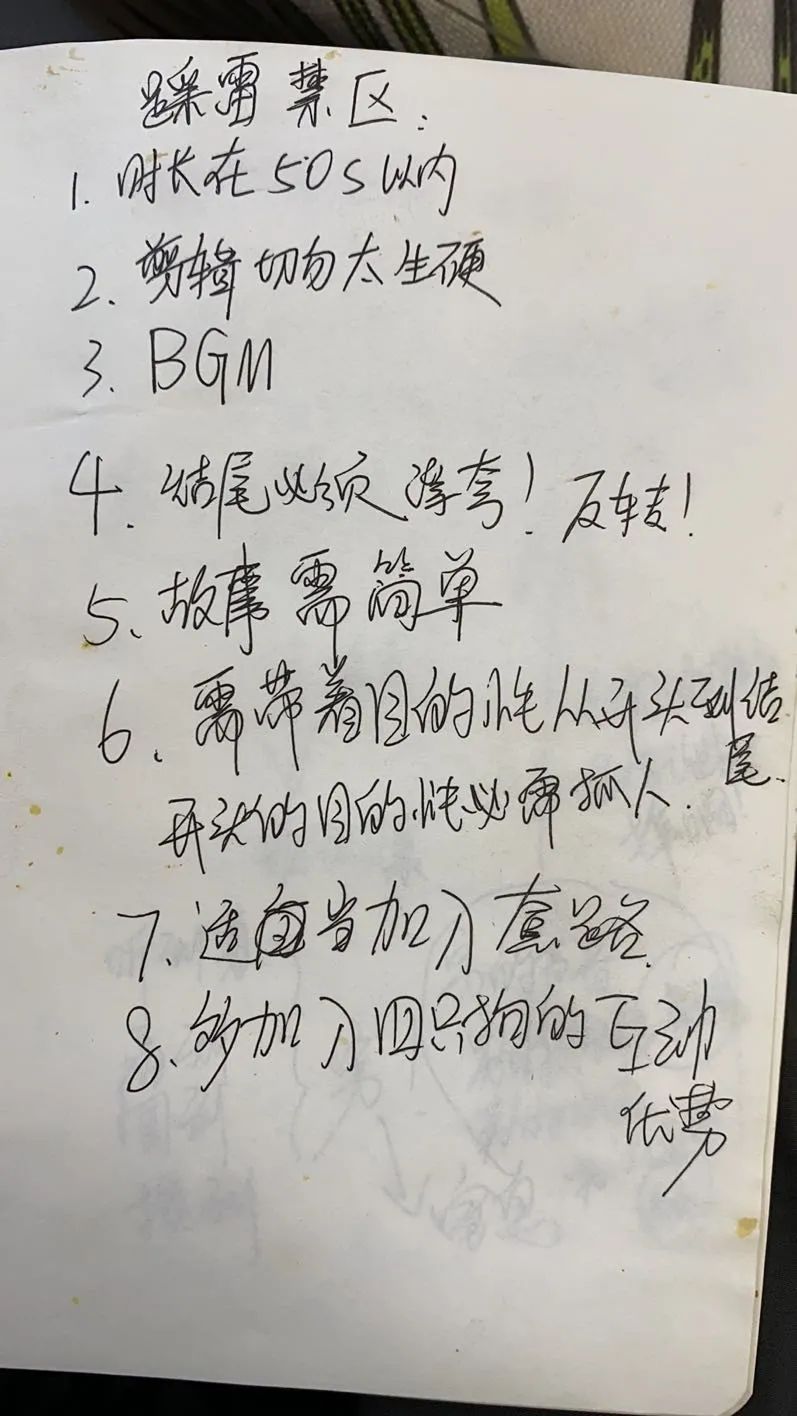 踩雷禁区:
1. 时长在50S以内
2. 剪辑切勿太生硬
3. BGM
4. 结尾必须 夸! 反转!
5. 故事需简单
6. 需带着目的性从开头到结尾.
开头的目的性必需抓人.
7. 适当加入套路.
8. 多加入四只狗的互动
优势